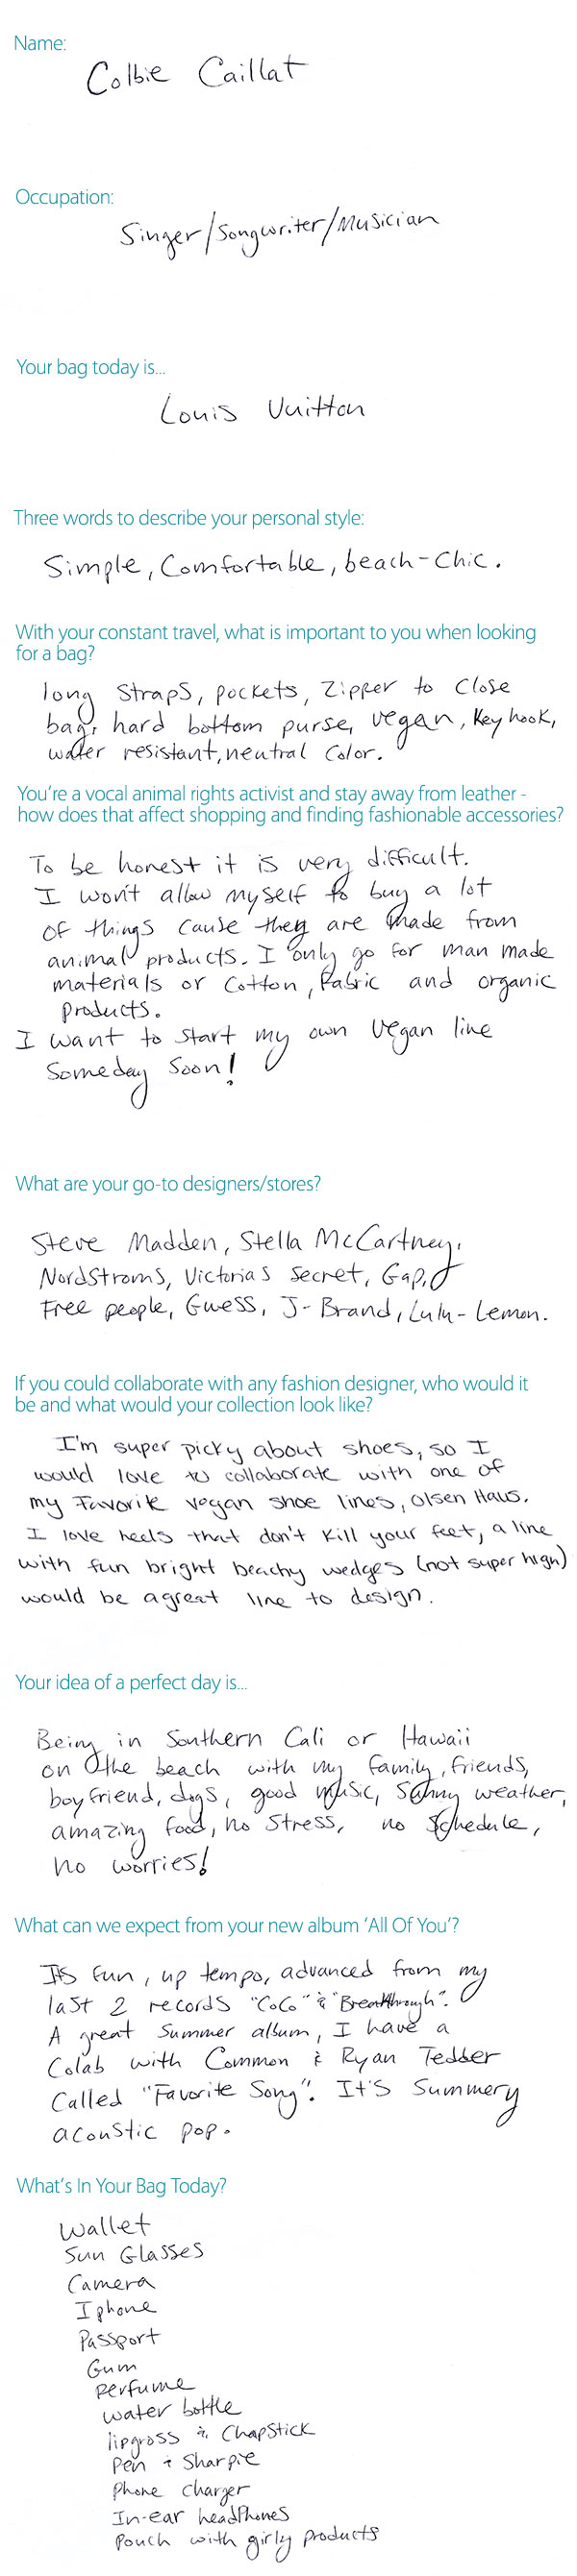 Name:
Colbie Caillat
Occupation:
Singer/Songwriter/Musician
Your bag today is...
Louis Vuitton
Three words to describe your personal style:
Simple, Comfortable, beach-chic.
With your constant travel, what is important to you when looking
for a bag?
long straps, pockets, zipper to close
bag, hard bottom purse, vegan, key hook,
water resistant, neutral color.
You're a vocal animal rights activist and stay away from leather -
how does that affect shopping and finding fashionable accessories?
To be honest it is very difficult.
I won't allow myself to buy a lot
of things cause they are made from
animal products. I only go for man made
materials or cotton, fabric and organic
products.
I want to start my own vegan line
someday soon!
What are your go-to designers/stores?
Steve Madden, Stella McCartney,
Nordstroms, Victorias Secret, Gap,
Free people, Guess, J-Brand, Lulu-Lemon.
If you could collaborate with any fashion designer, who would it
be and what would your collection look like?
I'm super picky about shoes, so I
would love to collaborate with one of
my favorite vegan shoe lines, Olsen Haus.
I love heels that don't kill your feet, a line
with fun bright beachy wedges (not super high)
would be a great line to design.
Your idea of a perfect day is...
Being in Southern Cali or Hawaii
on the beach with my family, friends,
boyfriend, dogs, good music, sunny weather,
amazing food, no stress, no schedule,
no worries!
What can we expect from your new album 'All Of You'?
It's fun, up tempo, advanced from my
last 2 records "CoCo" & "Breakthrough".
A great summer album, I have a
Colab with Common & Ryan Tedder
called "Favorite Song". It's summery
acoustic pop.
What's In Your Bag Today?
Wallet
Sun Glasses
Camera
Iphone
Passport
Gum
perfume
water bottle
lipgloss & Chapstick
Pen & Sharpie
Phone charger
In-ear headphones
Pouch with girly products